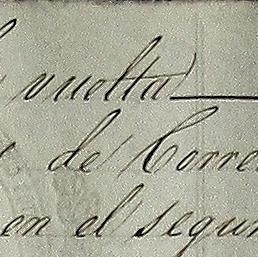 vuelta
de Corre
en el segun